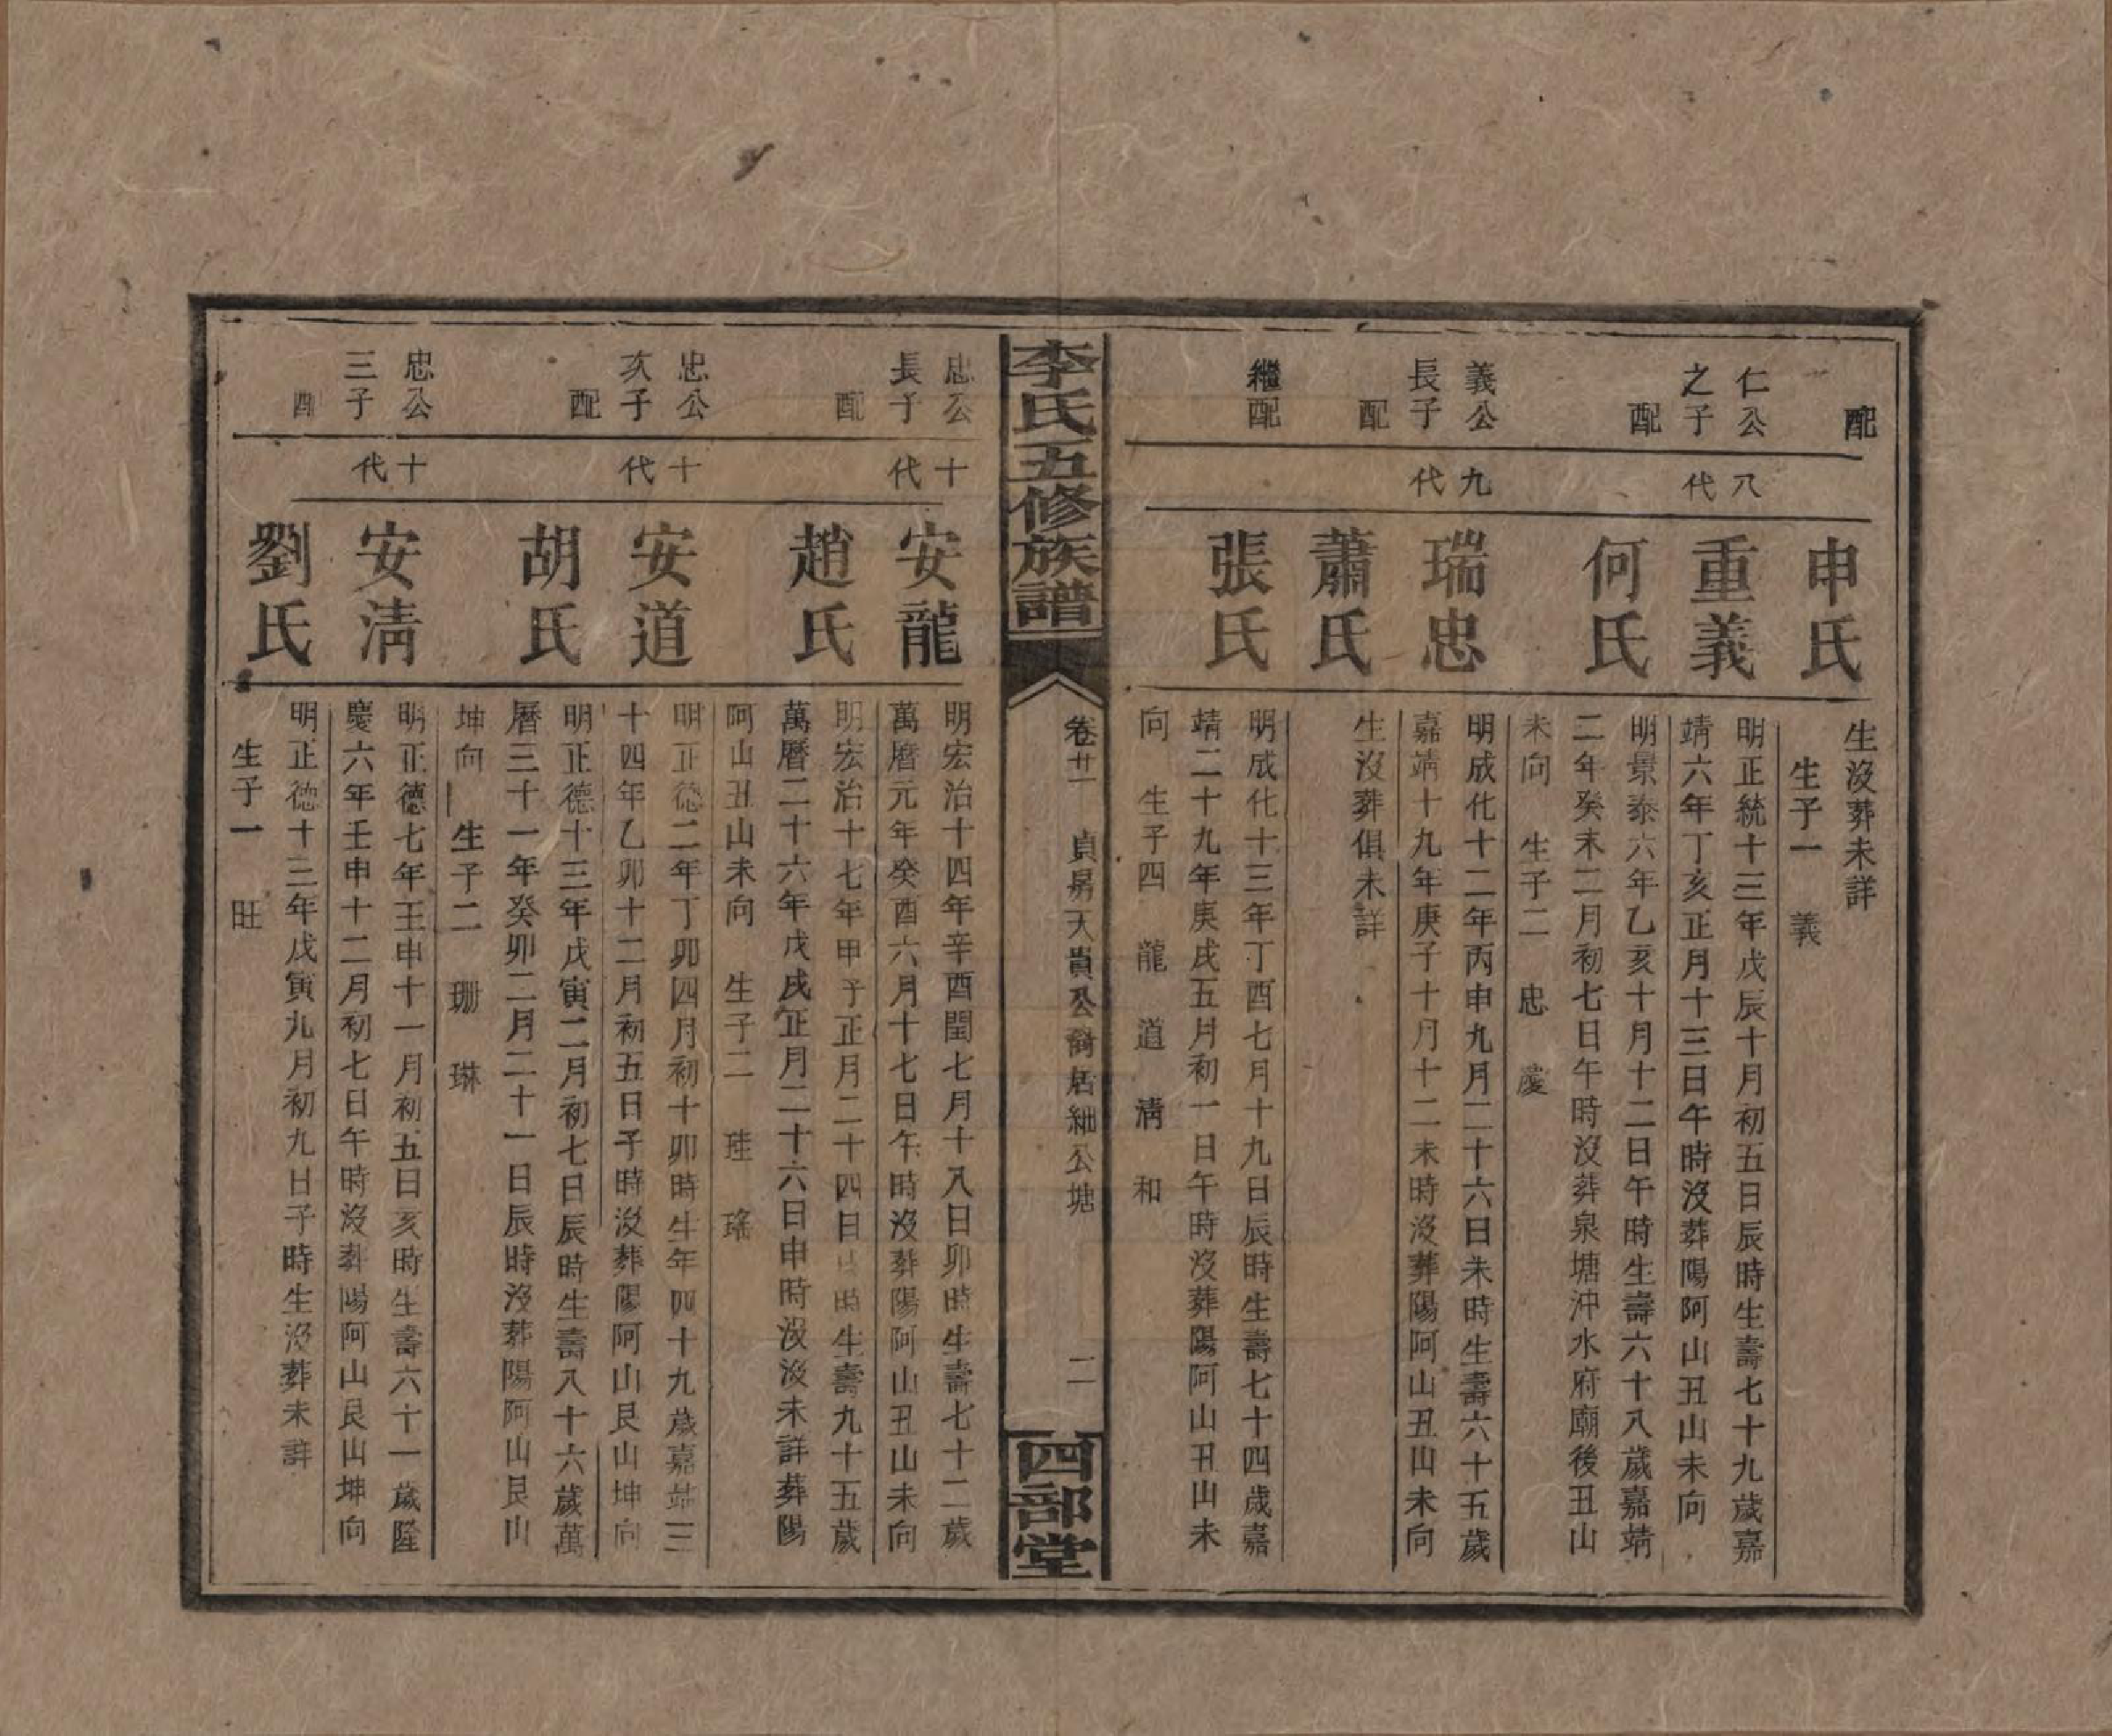 配
申氏
生沒葬未詳
生子一　義
仁公
之子
八
代
重義
明正統十三年戊辰十月初五日辰時生壽七十九歲嘉
靖六年丁亥正月十三日午時沒葬陽阿山丑山未向
配
何氏
明景泰六年乙亥十月十二日午時生壽六十八歲嘉靖
二年癸未二月初七日午時沒葬泉塘沖水府廟後丑山
未向　生子二　忠　慶
義公
長子
九
代
瑞忠
明成化十二年丙申九月二十六日未時生壽六十五歲
嘉靖十九年庚子十月十二未時沒葬陽阿山丑山未向
配
蕭氏
生沒葬俱未詳
繼配
張氏
明成化十三年丁酉七月十九日辰時生壽七十四歲嘉
靖二十九年庚戌五月初一日午時沒葬陽阿山丑山未
向　生子四　龍　道　淸　和
李氏五修族譜
卷廿一　貞房天貴公裔居細公塘
二
四部堂
忠公
長子
十
代
安龍
明宏治十四年辛酉閏七月十八日卯時生壽七十二歲
萬曆元年癸酉六月十七日午時沒葬陽阿山丑山未向
配
趙氏
明宏治十七年甲子正月二十四日時生壽九十五歲
萬曆二十六年戊戌正月二十六日申時沒沒未詳葬陽
阿山丑山未向　生子二　珪　瑤
忠公
次子
十
代
安道
明正德二年丁卯四月初十卯時生年四十九歲嘉靖三
十四年乙卯十二月初五日子時沒葬陽阿山艮山坤向
配
胡氏
明正德十三年戊寅二月初七日辰時生壽八十六歲萬
曆三十一年癸卯二月二十一日辰時沒葬陽阿山艮山
坤向　生子二　珊　琳
忠公
三子
十
代
安淸
明正德七年壬申十一月初五日亥時生壽六十一歲隆
慶六年壬申十二月初七日午時沒葬陽阿山艮山坤向
配
劉氏
明正德十三年戊寅九月初九日子時生沒葬未詳
生子一　旺